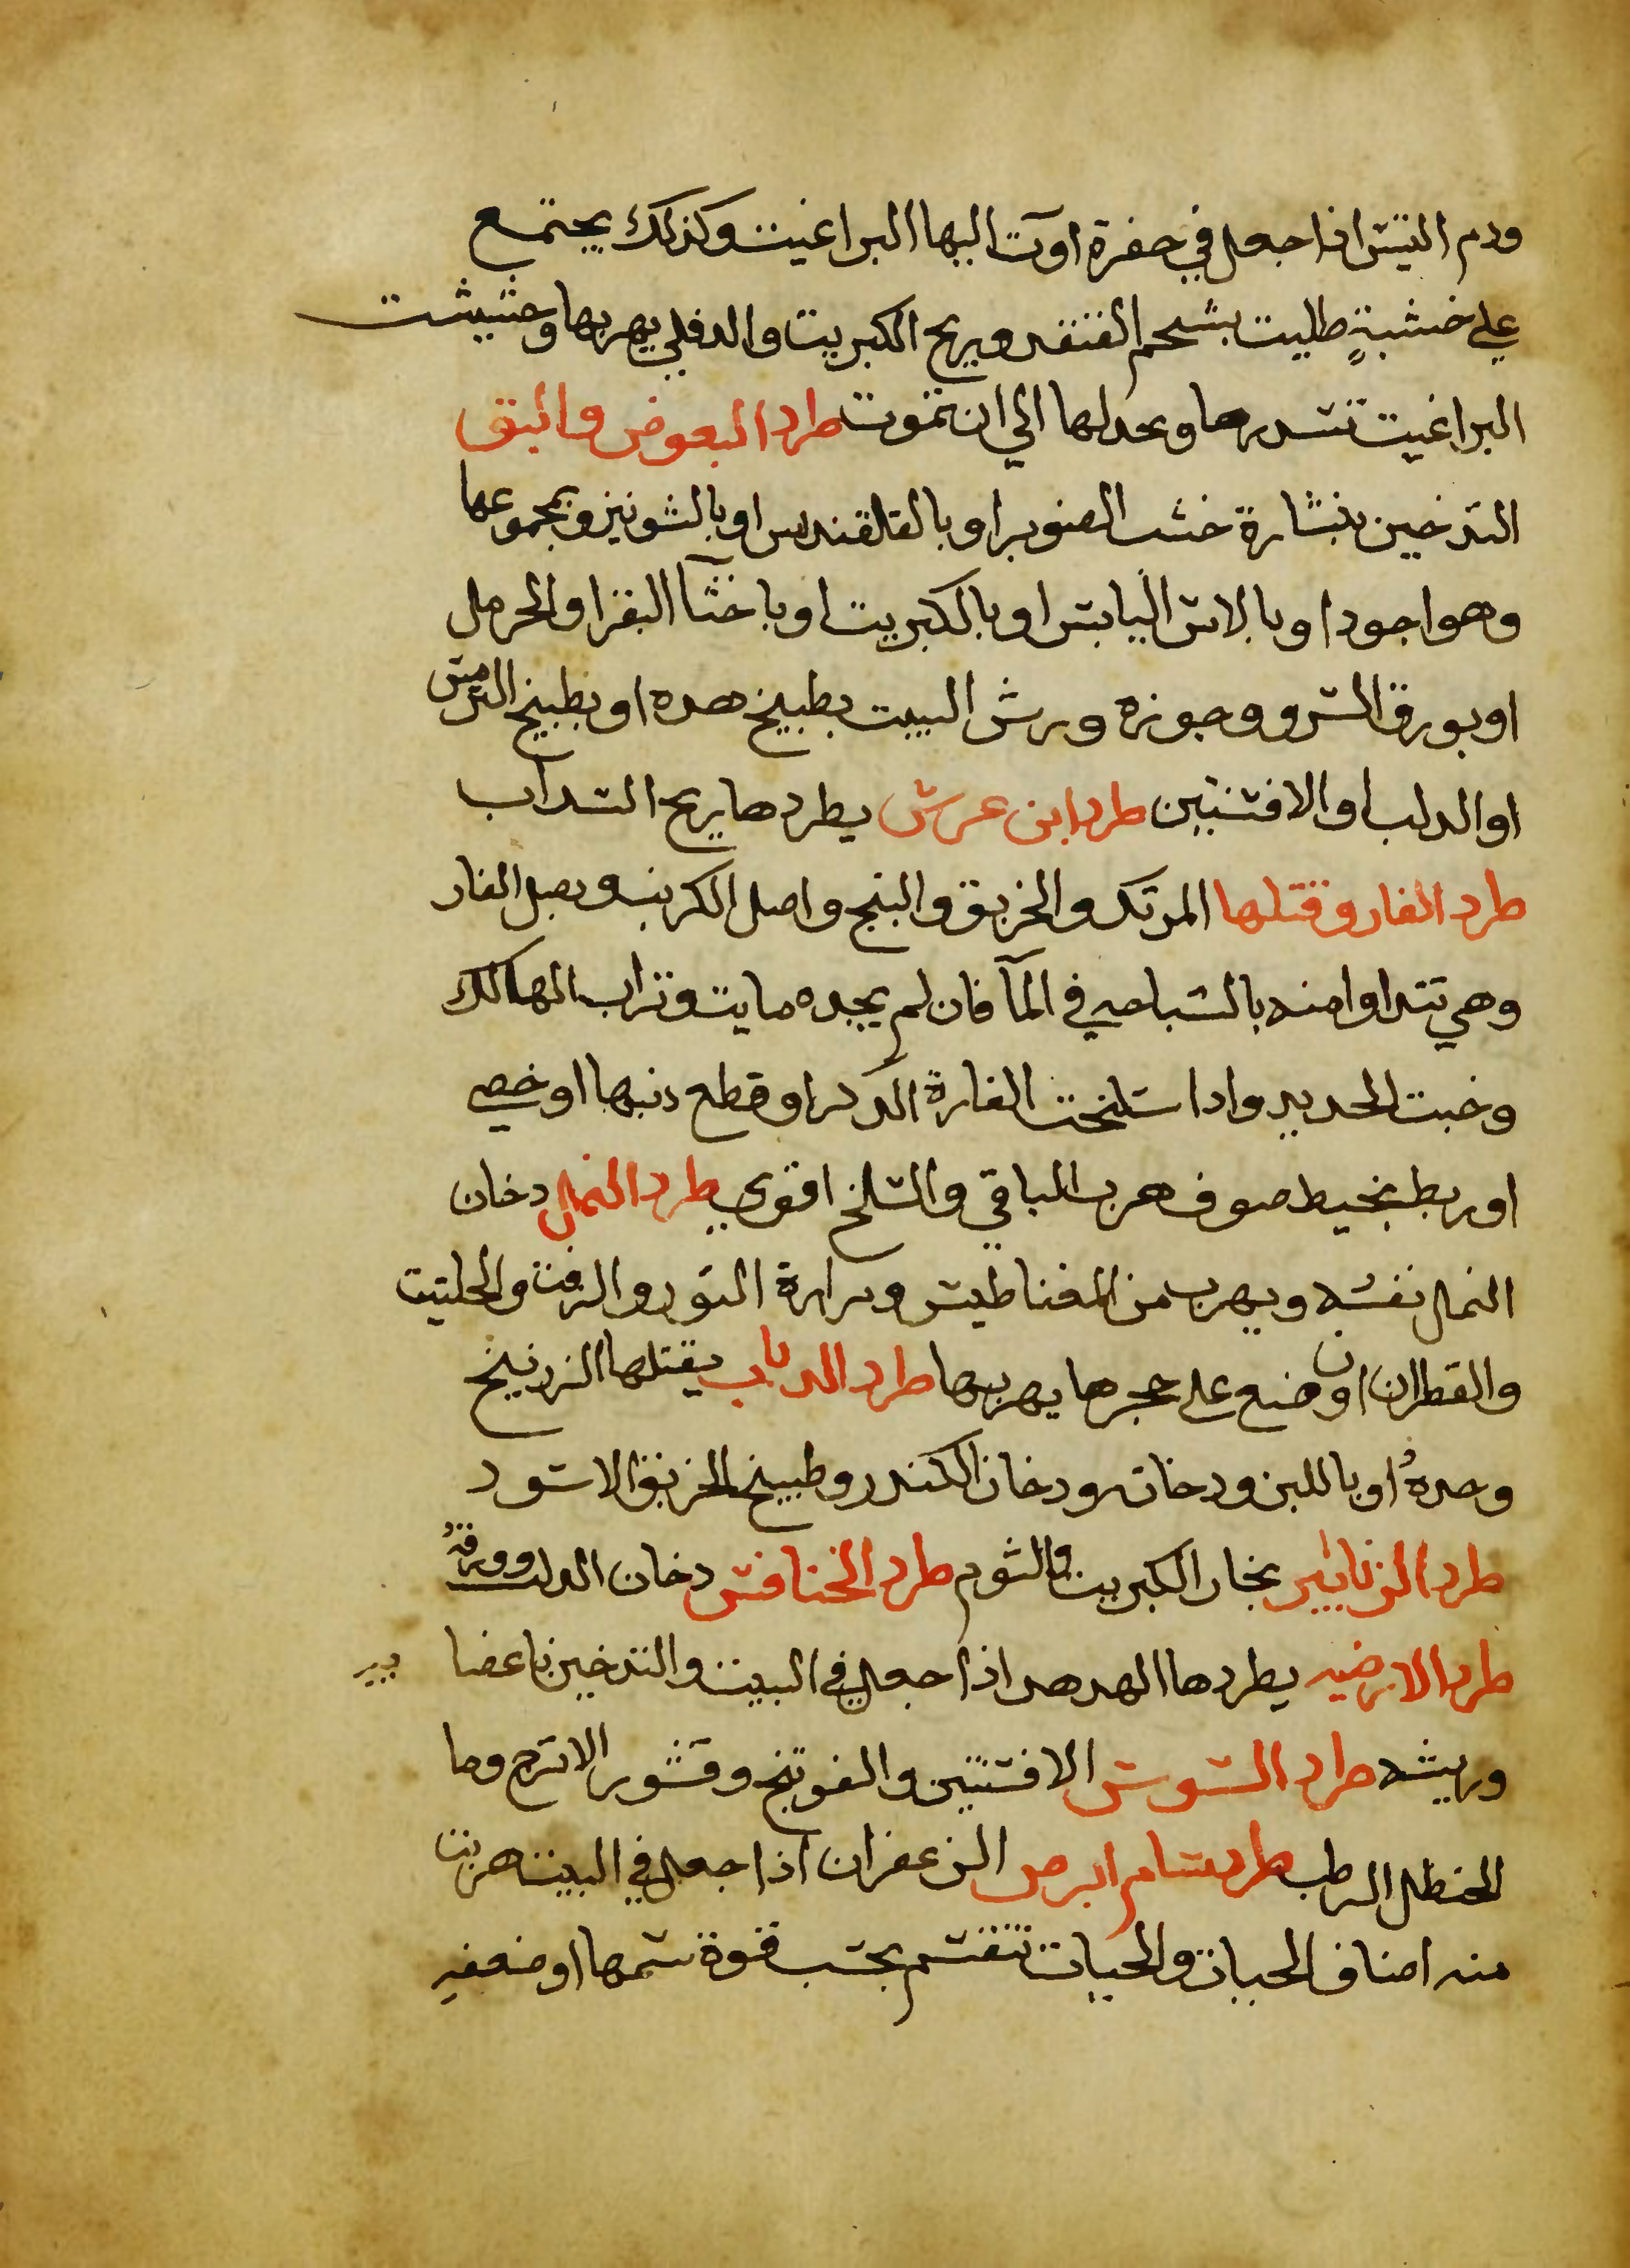 ودم التيس اذا جعل في حفرة اوت اليها البراغيث وكذلك يجتمع
علي خشبةٍ طليت بشحم القنفد وريح الكبريت والدفلي يهربها وحشيشت
البراغيت تسدرها وبحدلها الي ان تموت طرد البعوض والبق
التدخين بنشارة خشب الصنوبر او بالقلقندس او بالشونيز وبمجموعها
وهو اجود او بالاس اليابس او بالكبريت او باختآ البقر او الحرمل
او بورق السرو وجوزه ورش البيت بطبيخ هده او بطبيخ الترمس
او الدلب او الافسنتين طرد ابن عرس يطردها ريح السداب
طرد الفار وقتلها المرتك والخربق والبنج واصل الكرنب وبصل الفار
وهي تتداوا منه بالسباحه في المآ فان لم يجده مايت وتراب الهالك
وخبت الحديد وادا سلخت الفارة الدكر او قطع دنبها او خصي
او ربط بخيط صوف هرب الباقي والسلخ اقوي طرد النمل دخان
النمل نفسه ويهرب من المغناطيس ومرارة الثور والزفت والحلتيت
والقطران ان وضع علي حجرها يهربها طرد الدباب يقتلها الزرنيخ
وحدهُ او باللبن ودخانه ودخان الكندر وطبيخ الخربق الاسود
طرد الزنابير بخار الكبريت والثوم طرد الخنافس دخان الدلب وورقهُ
طرد الارضيه يطردها الهدهد اذا جعل في البيت والتدخين باعضا يه
وريشه طرد السوس الافسنتين والفوتنج وقشور الاترج وما
الحنظل الرطب طرد سام ابرص الزعفران اذا جعل في البيت هربت
منه اصناف الحيات والحيات تنقسم بحسب قوة سمها او ضعفهِ